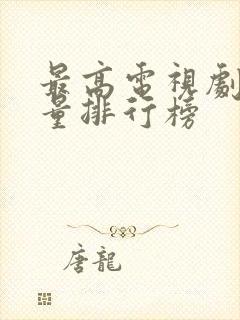 最高電視劇
量排行榜
唐龍